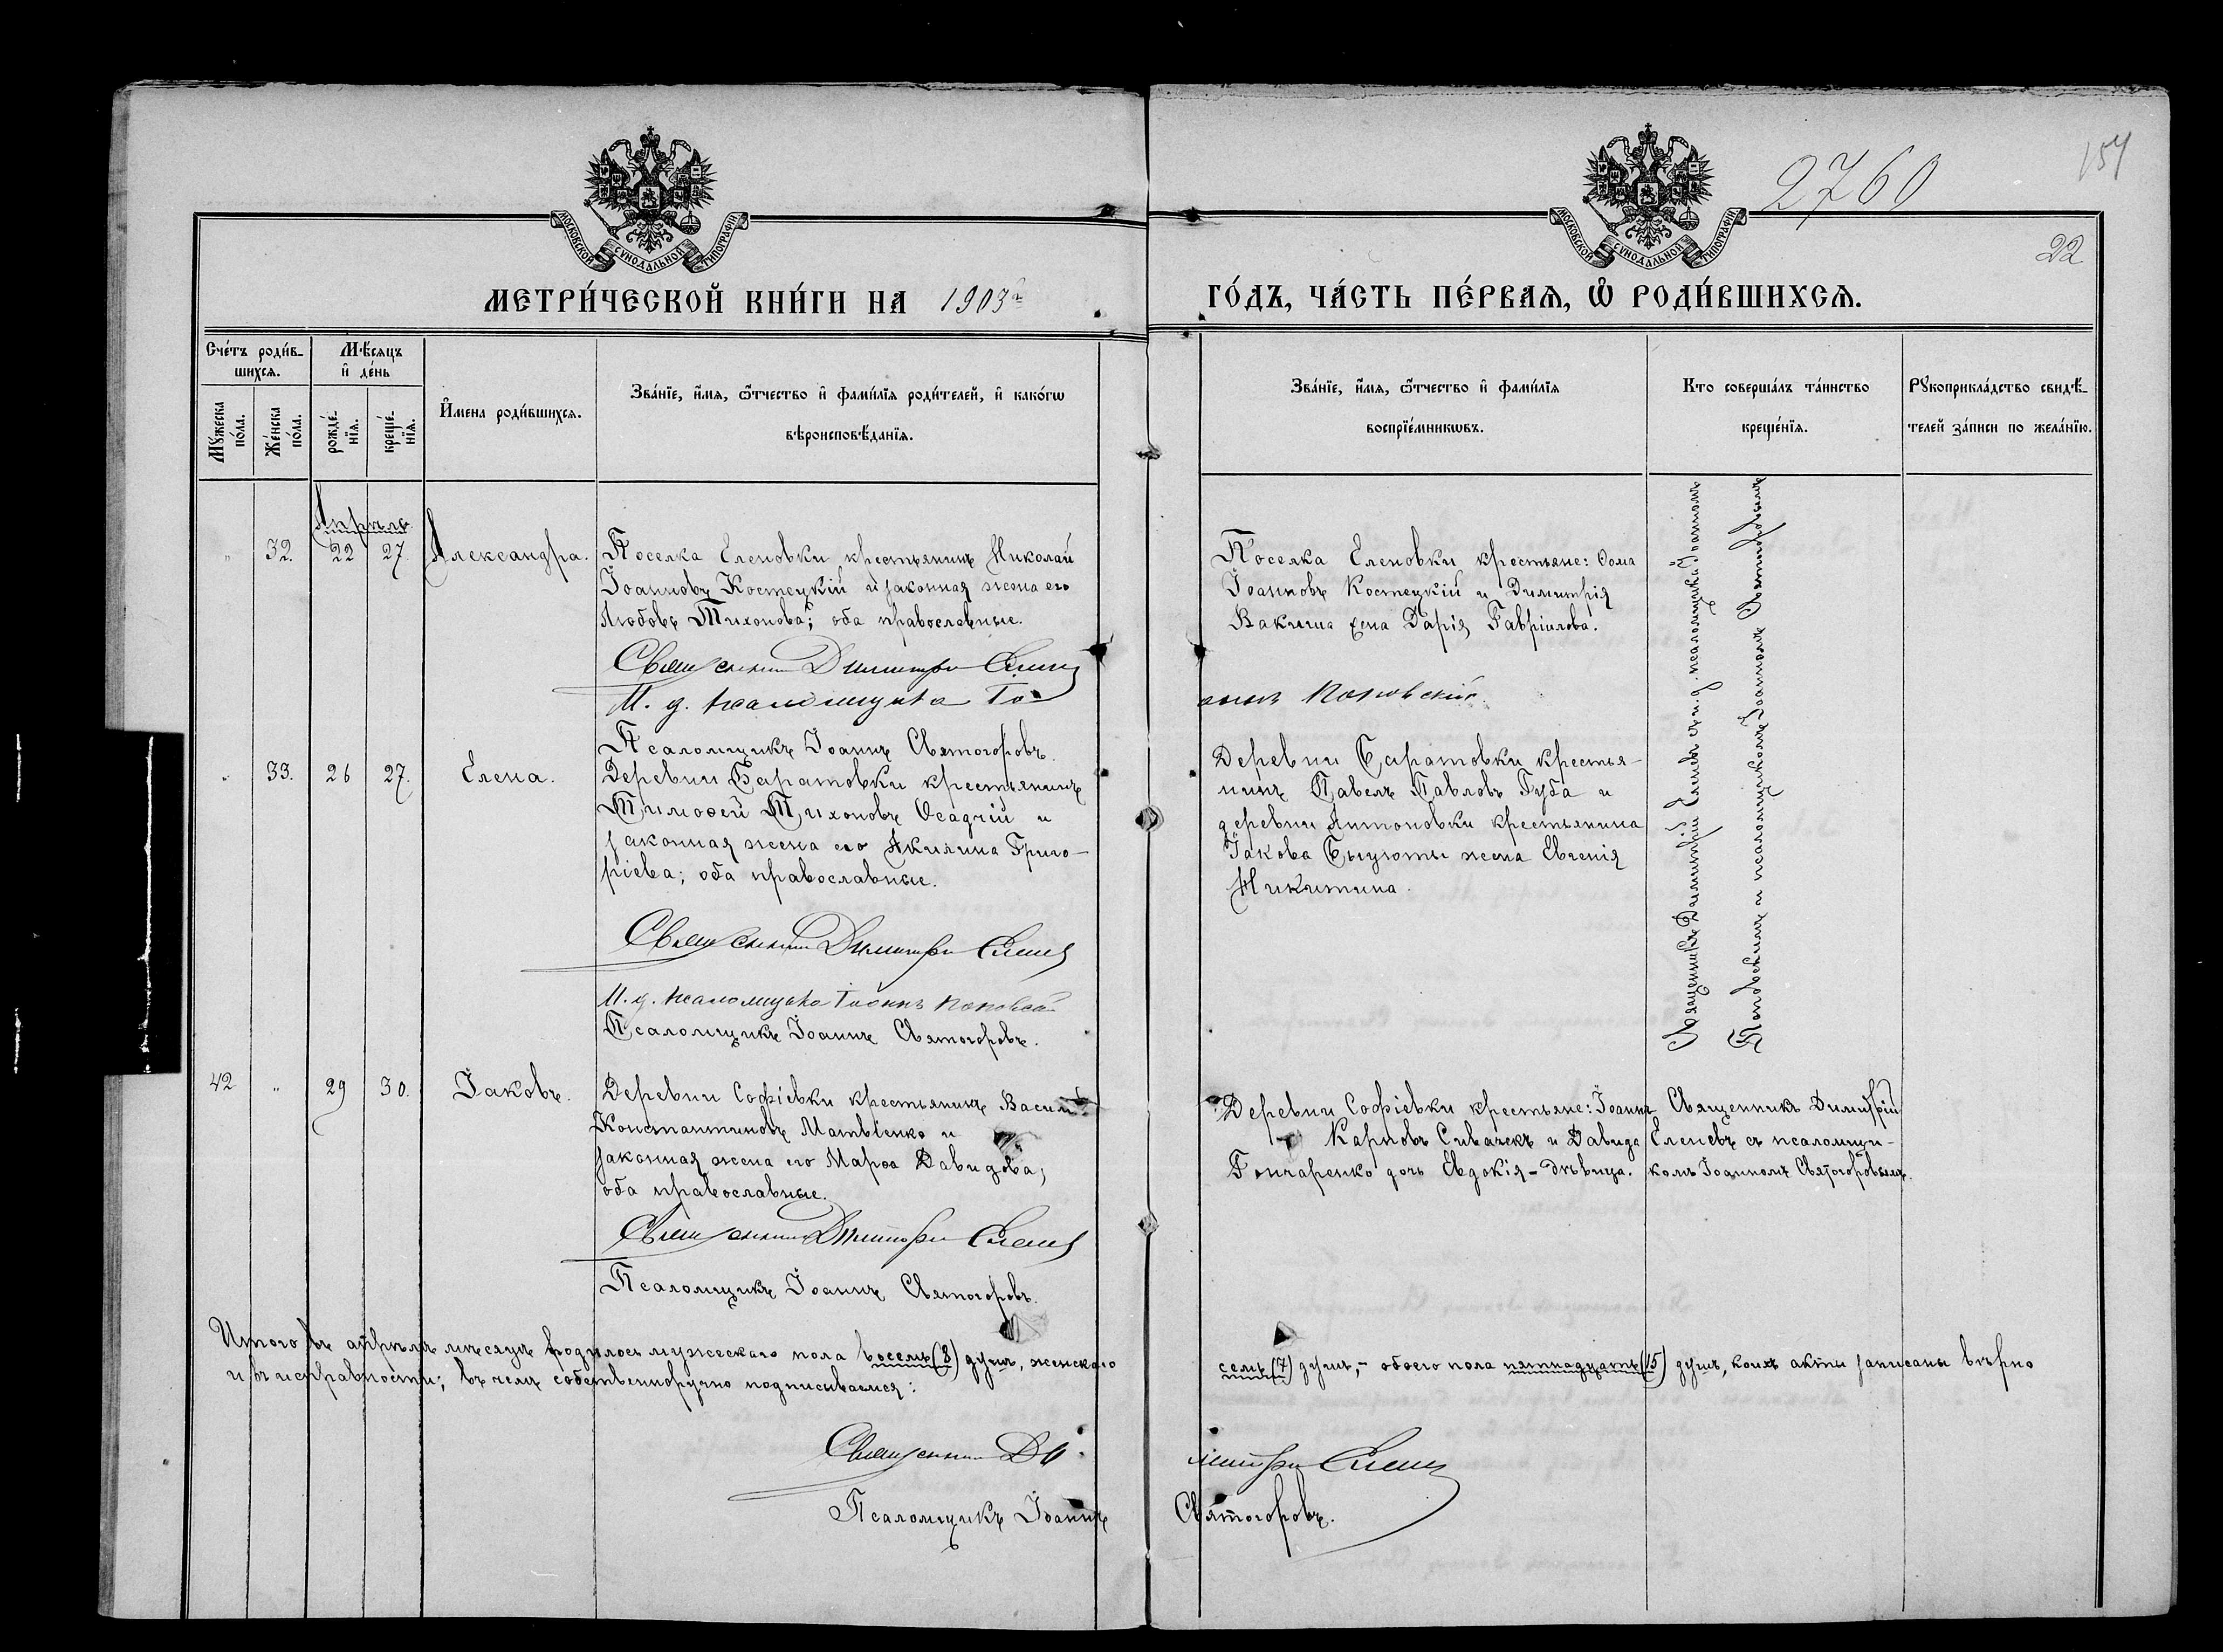 2760
154
22
МОСКОВСКОЙ СѴНОДАЛЬНОЙ ТИПОГРАФІИ
МОСКОВСКОЙ СѴНОДАЛЬНОЙ ТИПОГРАФІИ
МЕТРИ́ЧЕСКОЙ КНИ́ГИ НА 1903 ГО́ДЪ, ЧА́СТЬ ПЕ́РВАѦ, Ѡ РОДИ́ВШИХСѦ.
Сче́тъ роди́в-
шихсѧ.
Мꙋ́жеска по́ла.
Же́нска по́ла.
Мѣ́сѧцъ
и҆ де́нь
рожде́-
нїѧ.
креще́-
нїѧ.
И҆мена роди́вшихсѧ.
Зва́нїе, и҆́мѧ, ѻ҆́тчество и҆ фами́лїѧ роди́телей, и҆ како́гѡ
вѣроисповѣ́данїѧ.
Зва́нїе, и҆́мѧ, ѻ҆́тчество и҆ фами́лїѧ
воспрїе́мникѡвъ.
Кто соверша́лъ та́инство
креще́нїѧ.
Рꙋкоприкла́дство свидѣ́-
телей за́писи по жела́нїю.
Апрѣль
" 32. 22 27. Александра.
Поселка Еленовки крестьянинъ Николай
Іоанновъ Костецкій и законная жена его
Любовь Тихонова; оба православные.
Священникъ Димитрій Еленевъ
И. д. псаломщика Іоаннъ Поповскій
Псаломщикъ Іоаннъ Святогоровъ.
Поселка Еленовки крестьяне: Ѳома
Іоанновъ Костецкій и Димитрія
Вакуша жена Дарія Гавріилова.
Священникъ Димитрій Еленевъ съ и. д. псаломщика Іоанномъ
Поповскимъ и псаломщикомъ Іоанномъ Святогоровымъ
" 33. 26 27. Елена.
Деревни Саратовки крестьянинъ
Тимоѳей Тихоновъ Осадчій и
законная жена его Акилина Григо-
ріева; оба православные.
Священникъ Димитрій Еленевъ
И. д. псаломщика Іоаннъ Поповскій
Псаломщикъ Іоаннъ Святогоровъ.
Деревни Саратовки крестья-
нинъ Павелъ Павловъ Губа и
деревни Антоновки крестьянина
Іакова жена Евгенія
Никитина.
42 " 29 30. Іаковъ.
Деревни Софіевки крестьянинъ Василій
Константиновъ Матвіенко и
законная жена его Марѳа Давидова;
оба православные.
Священникъ Димитрій Еленевъ
Псаломщикъ Іоаннъ Святогоровъ.
Деревни Софіевки крестьяне: Іоаннъ
Карповъ Сивачекъ и Давида
Гончаренко дочь Евдокія - дѣвица.
Священникъ Димитрій
Еленевъ съ псаломщи-
комъ Іоанномъ Святогоровымъ.
Итого въ апрѣлѣ мѣсяцѣ родилось мужескаго пола восемь (8) душъ, женскаго семь (7) душъ, - обоего пола пятнадцать (15) душъ, коихъ акты записаны вѣрно
и въ исправности; въ чемъ собственноручно подписываемся:
Священникъ Димитрій Еленевъ
Псаломщикъ Іоаннъ Святогоровъ.